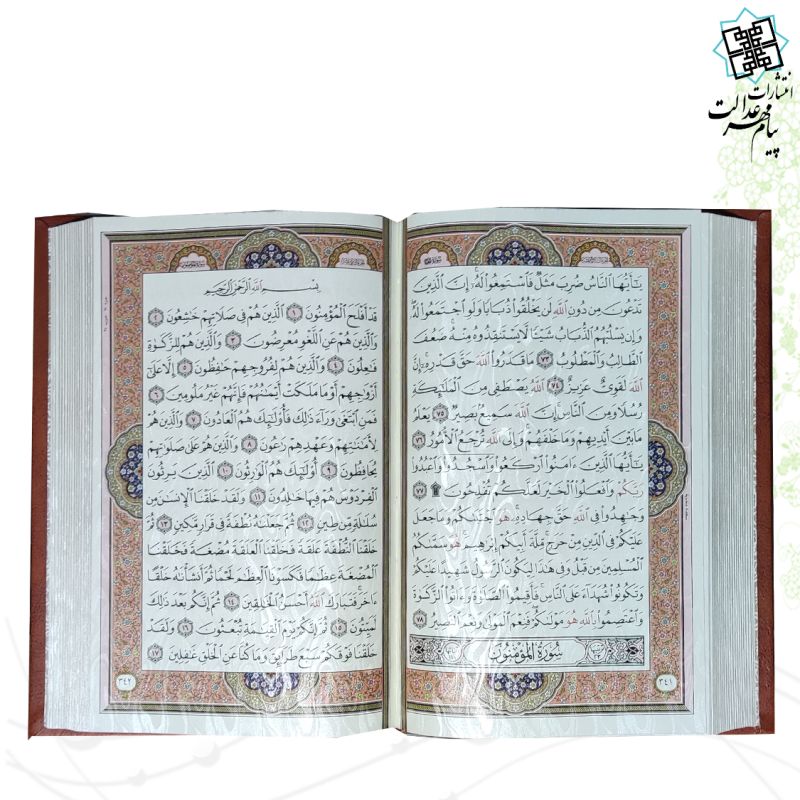 انتشارات
پیام مهر عدالت
يَٰٓأَيُّهَا ٱلنَّاسُ ضُرِبَ مَثَلٌ فَٱسْتَمِعُوا۟ لَهُۥٓ ۚ إِنَّ ٱلَّذِينَ
تَدْعُونَ مِن دُونِ ٱللَّهِ لَن يَخْلُقُوا۟ ذُبَابًا وَلَوِ ٱجْتَمَعُوا۟ لَهُۥ ۖ
وَإِن يَسْلُبْهُمُ ٱلذُّبَابُ شَيْـًٔا لَّا يَسْتَنقِذُوهُ مِنْهُ ۚ ضَعُفَ
ٱلطَّالِبُ وَٱلْمَطْلُوبُ ٧٣ مَا قَدَرُوا۟ ٱللَّهَ حَقَّ قَدْرِهِۦٓ ۗ إِنَّ
ٱللَّهَ لَقَوِىٌّ عَزِيزٌ ٧٤ ٱللَّهُ يَصْطَفِى مِنَ ٱلْمَلَٰٓئِكَةِ
رُسُلًا وَمِنَ ٱلنَّاسِ ۚ إِنَّ ٱللَّهَ سَمِيعٌۢ بَصِيرٌ ٧٥ يَعْلَمُ
مَا بَيْنَ أَيْدِيهِمْ وَمَا خَلْفَهُمْ ۗ وَإِلَى ٱللَّهِ تُرْجَعُ ٱلْأُمُورُ ٧٦
يَٰٓأَيُّهَا ٱلَّذِينَ ءَامَنُوا۟ ٱرْكَعُوا۟ وَٱسْجُدُوا۟ وَٱعْبُدُوا۟
رَبَّكُمْ وَٱفْعَلُوا۟ ٱلْخَيْرَ لَعَلَّكُمْ تُفْلِحُونَ ۩ ٧٧
وَجَٰهِدُوا۟ فِى ٱللَّهِ حَقَّ جِهَادِهِۦ ۚ هُوَ ٱجْتَبَىٰكُمْ وَمَا جَعَلَ
عَلَيْكُمْ فِى ٱلدِّينِ مِنْ حَرَجٍ ۚ مِّلَّةَ أَبِيكُمْ إِبْرَٰهِيمَ ۚ هُوَ سَمَّىٰكُمُ
ٱلْمُسْلِمِينَ مِن قَبْلُ وَفِى هَٰذَا لِيَكُونَ ٱلرَّسُولُ شَهِيدًا عَلَيْكُمْ
وَتَكُونُوا۟ شُهَدَآءَ عَلَى ٱلنَّاسِ ۚ فَأَقِيمُوا۟ ٱلصَّلَوٰةَ وَءَاتُوا۟ ٱلزَّكَوٰةَ
وَٱعْتَصِمُوا۟ بِٱللَّهِ هُوَ مَوْلَىٰكُمْ ۖ فَنِعْمَ ٱلْمَوْلَىٰ وَنِعْمَ ٱلنَّصِيرُ ٧٨
سُورَةُ ٱلْمُؤْمِنُون
٣٤١
بِسْمِ ٱللَّهِ ٱلرَّحْمَٰنِ ٱلرَّحِيمِ
قَدْ أَفْلَحَ ٱلْمُؤْمِنُونَ ١ ٱلَّذِينَ هُمْ فِى صَلَاتِهِمْ خَٰشِعُونَ ٢
وَٱلَّذِينَ هُمْ عَنِ ٱللَّغْوِ مُعْرِضُونَ ٣ وَٱلَّذِينَ هُمْ لِلزَّكَوٰةِ
فَٰعِلُونَ ٤ وَٱلَّذِينَ هُمْ لِفُرُوجِهِمْ حَٰفِظُونَ ٥ إِلَّا عَلَىٰٓ
أَزْوَٰجِهِمْ أَوْ مَا مَلَكَتْ أَيْمَٰنُهُمْ فَإِنَّهُمْ غَيْرُ مَلُومِينَ ٦
فَمَنِ ٱبْتَغَىٰ وَرَآءَ ذَٰلِكَ فَأُو۟لَٰٓئِكَ هُمُ ٱلْعَادُونَ ٧ وَٱلَّذِينَ هُمْ
لِأَمَٰنَٰتِهِمْ وَعَهْدِهِمْ رَٰعُونَ ٨ وَٱلَّذِينَ هُمْ عَلَىٰ صَلَوَٰتِهِمْ
يُحَافِظُونَ ٩ أُو۟لَٰٓئِكَ هُمُ ٱلْوَٰرِثُونَ ١٠ ٱلَّذِينَ يَرِثُونَ
ٱلْفِرْدَوْسَ هُمْ فِيهَا خَٰلِدُونَ ١١ وَلَقَدْ خَلَقْنَا ٱلْإِنسَٰنَ مِن
سُلَٰلَةٍ مِّن طِينٍ ١٢ ثُمَّ جَعَلْنَٰهُ نُطْفَةً فِى قَرَارٍ مَّكِينٍ ١٣ ثُمَّ
خَلَقْنَا ٱلنُّطْفَةَ عَلَقَةً فَخَلَقْنَا ٱلْعَلَقَةَ مُضْغَةً فَخَلَقْنَا
ٱلْمُضْغَةَ عِظَٰمًا فَكَسَوْنَا ٱلْعِظَٰمَ لَحْمًا ثُمَّ أَنشَأْنَٰهُ خَلْقًا
ءَاخَرَ ۚ فَتَبَارَكَ ٱللَّهُ أَحْسَنُ ٱلْخَٰلِقِينَ ١٤ ثُمَّ إِنَّكُم بَعْدَ ذَٰلِكَ
لَمَيِّتُونَ ١٥ ثُمَّ إِنَّكُمْ يَوْمَ ٱلْقِيَٰمَةِ تُبْعَثُونَ ١٦ وَلَقَدْ
خَلَقْنَا فَوْقَكُمْ سَبْعَ طَرَآئِقَ وَمَا كُنَّا عَنِ ٱلْخَلْقِ غَٰفِلِينَ ١٧
٣٤٢